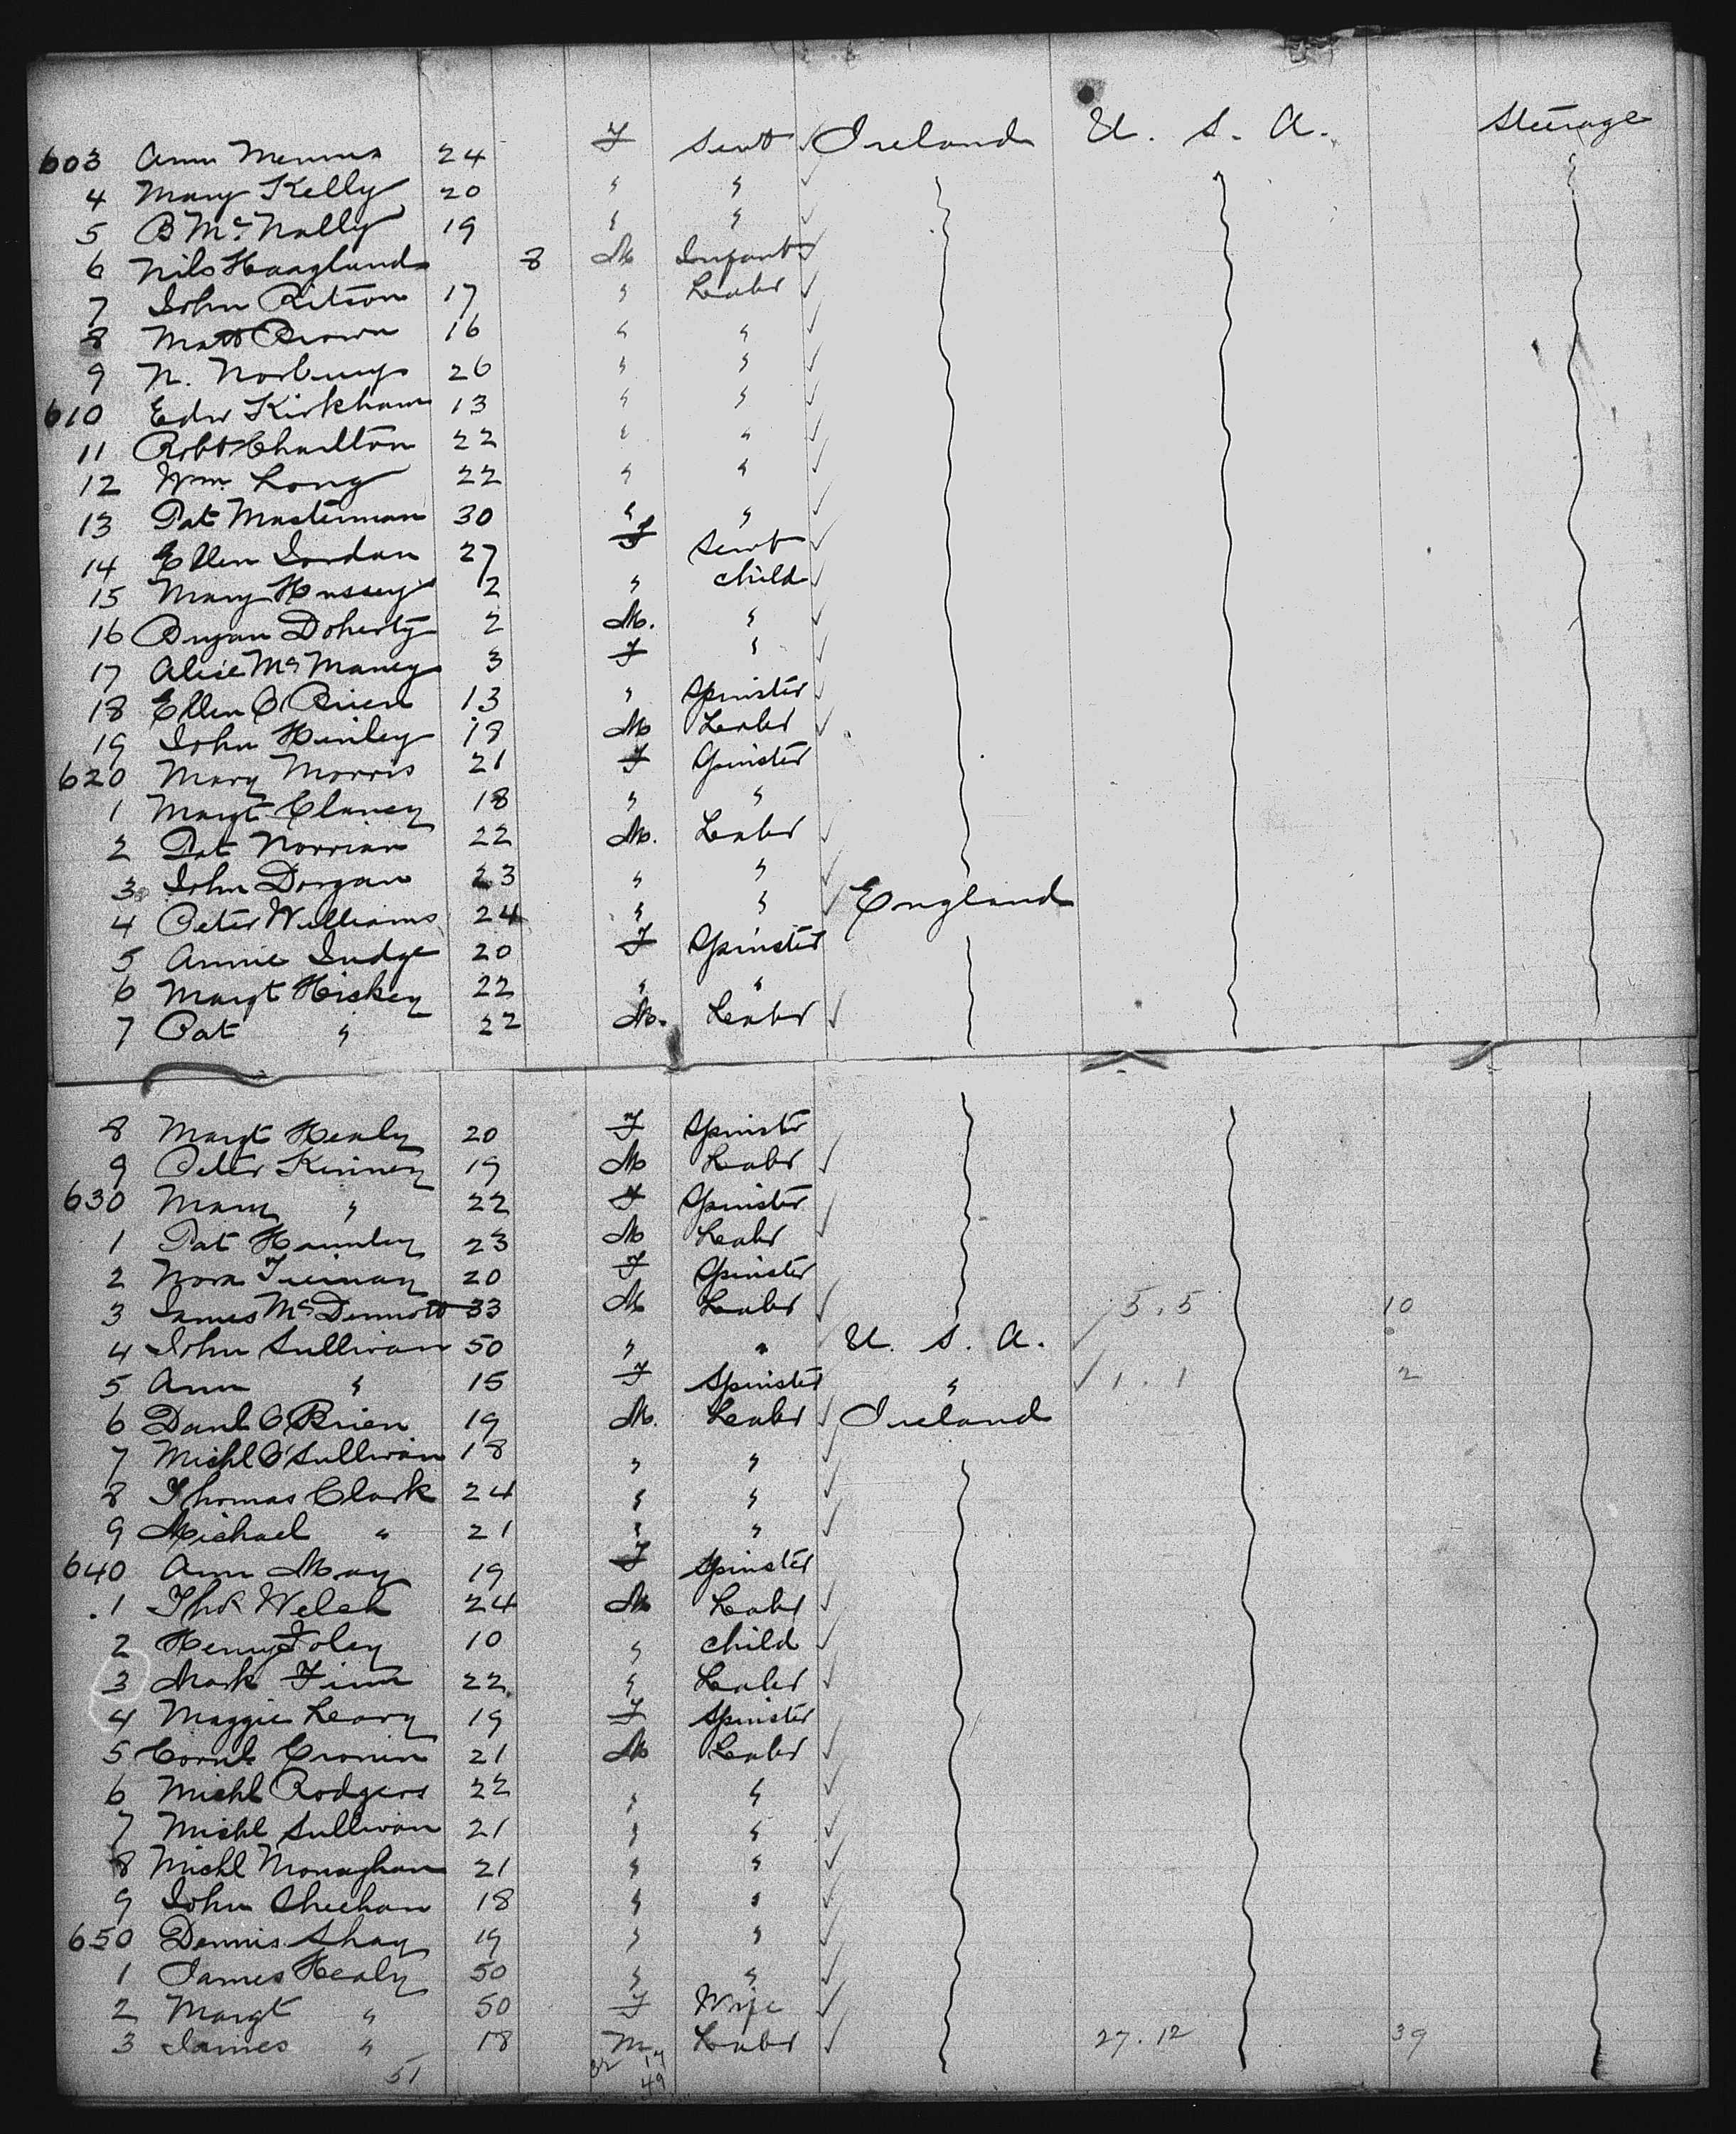 603 Ann Mennis 24 F Servt Ireland U. S. A. Steerage
4 Mary Kelly 20 " "
5 B McNally 19 " "
6 Nils Haaglund 8 M Infant
7 John Ritson 17 " Labr
8 Matt Brown 16 " "
9 N. Norbury 26 " "
610 Edw Kirkham 13 " "
11 Robt Charlton 22 " "
12 Wm. Long 22 " "
13 Pat Masterman 30 " "
14 Ellen Jordan 27 F Servt
15 Mary Hussey 2 " child
16 Bryan Doherty 2 M. "
17 Alice McManey 3 F "
18 Ellen O'Brien 13 " Spinster
19 John Hinley 18 M Labr
620 Mary Morris 21 F Spinster
1 Margt Clancy 18 " "
2 Pat Norrian 22 M. Labr
3 John Dorgan 23 " "
4 Peter Williams 24 " " England
5 Annie Judge 20 F Spinster
6 Margt Hickey 22 " "
7 Pat " 22 M. Labr
8 Margt Healy 20 F Spinstr
9 Peter Kinney 19 M Labr
630 Mary " 22 F Spinster
1 Pat Haunley 23 M Labr
2 Nora Tiernay 20 F Spinster
3 James McDermott 33 M Labr 5.5 10
4 John Sullivan 50 " " U. S. A.
5 Ann " 15 F Spinster " 1.1 2
6 Danl O'Brien 19 M. Labr Ireland
7 Michl O'Sullivan 18 " "
8 Thomas Clark 24 " "
9 Michael " 21 " "
640 Ann May 19 F Spinster
1 Thos Welch 24 M Labr
2 Henry Foley 10 " child
3 Mark Finn 22 " Labr
4 Maggie Leary 19 F Spinster
5 Cornl Cronin 21 M Labr
6 Michl Rodgers 22 " "
7 Michl Sullivan 21 " "
8 Michl Monaghan 21 " "
9 John Sheehan 18 " "
650 Dennis Shay 19 " "
1 James Healy 50 " "
2 Margt " 50 F Wife
3 James " 18 M Labr 27.12 39
51 32 17
49